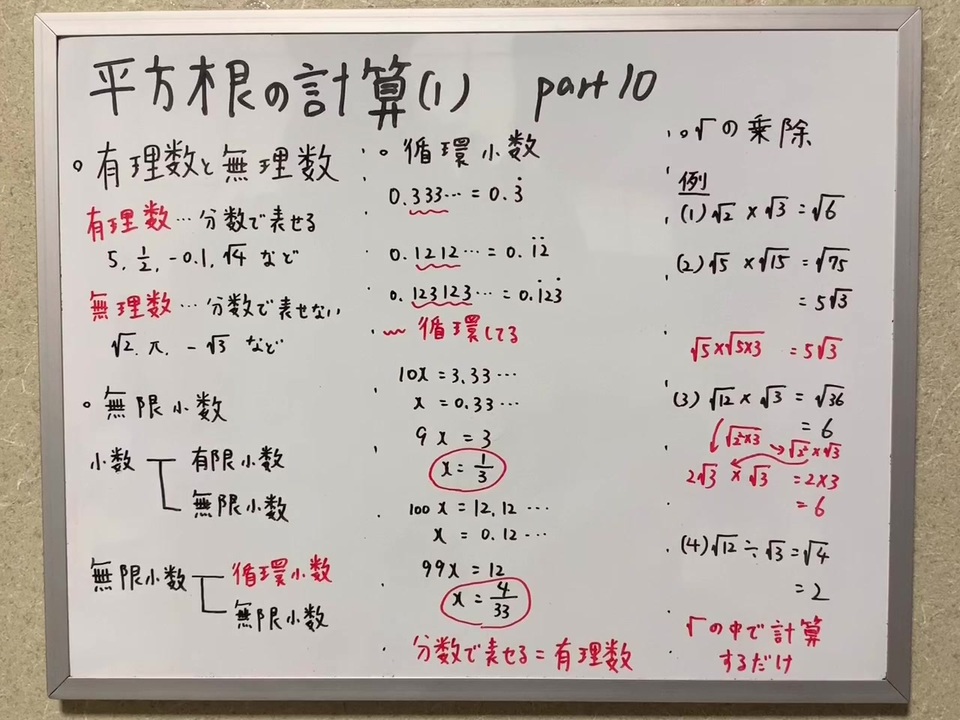 平方根の計算(1) part10
○ 有理数と無理数
有理数…分数で表せる
5, 1/2, -0.1, √4 など
無理数…分数で表せない
√2, π, -√3 など
○ 無限小数
小数 有限小数
無限小数
無限小数 循環小数
無限小数
○ 循環小数
0.333… = 0.3̇
0.1212… = 0.1̇2̇
0.123123… = 0.1̇23̇
〰 循環してる
10x = 3.33…
x = 0.33…
9x = 3
x = 1/3
100x = 12.12…
x = 0.12…
99x = 12
x = 4/33
分数で表せる = 有理数
○ √の乗除
例
(1) √2 × √3 = √6
(2) √5 × √15 = √75
= 5√3
√5 × √5×3 = 5√3
(3) √12 × √3 = √36
= 6
√2²×3 → √2² × √3
2√3 × √3 = 2×3
= 6
(4) √12 ÷ √3 = √4
= 2
√の中で計算
するだけ